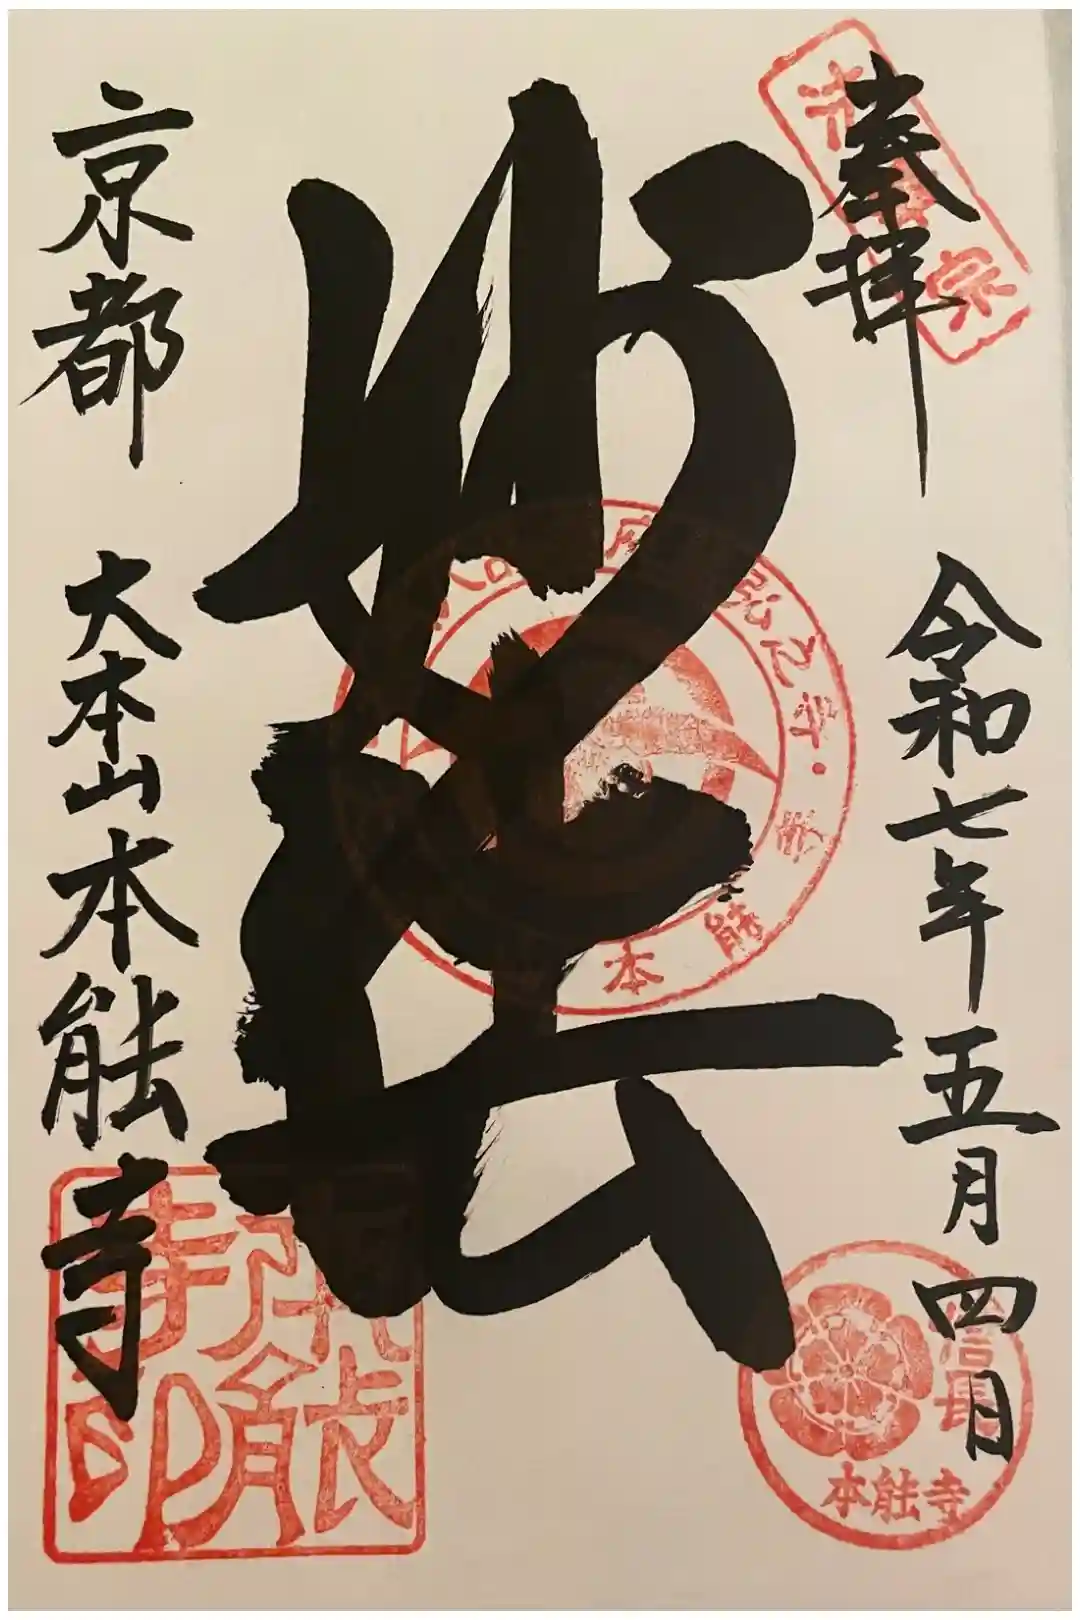 奉拝
令和七年五月四日
妙法
京都
大本山本能寺
本能寺印
信長
本能寺
宗
本能